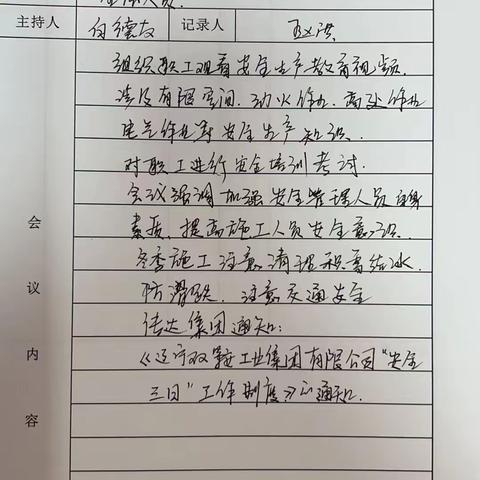 全体人员.
主持人 白德友 记录人 赵洪
组织职工观看安全生产教育视频.
涉及有限空间、动火作业、高处作业
电气作业等安全生产知识.
对职工进行安全培训考试.
会议强调加强安全管理人员自身
素质、提高施工人员安全意识.
冬季施工注意清理积雪结冰.
防滑跌. 注意交通安全
传达集团通知:
《辽宁双鞍工业集团有限公司"安全
三日"工作制度》的通知.
会议内容